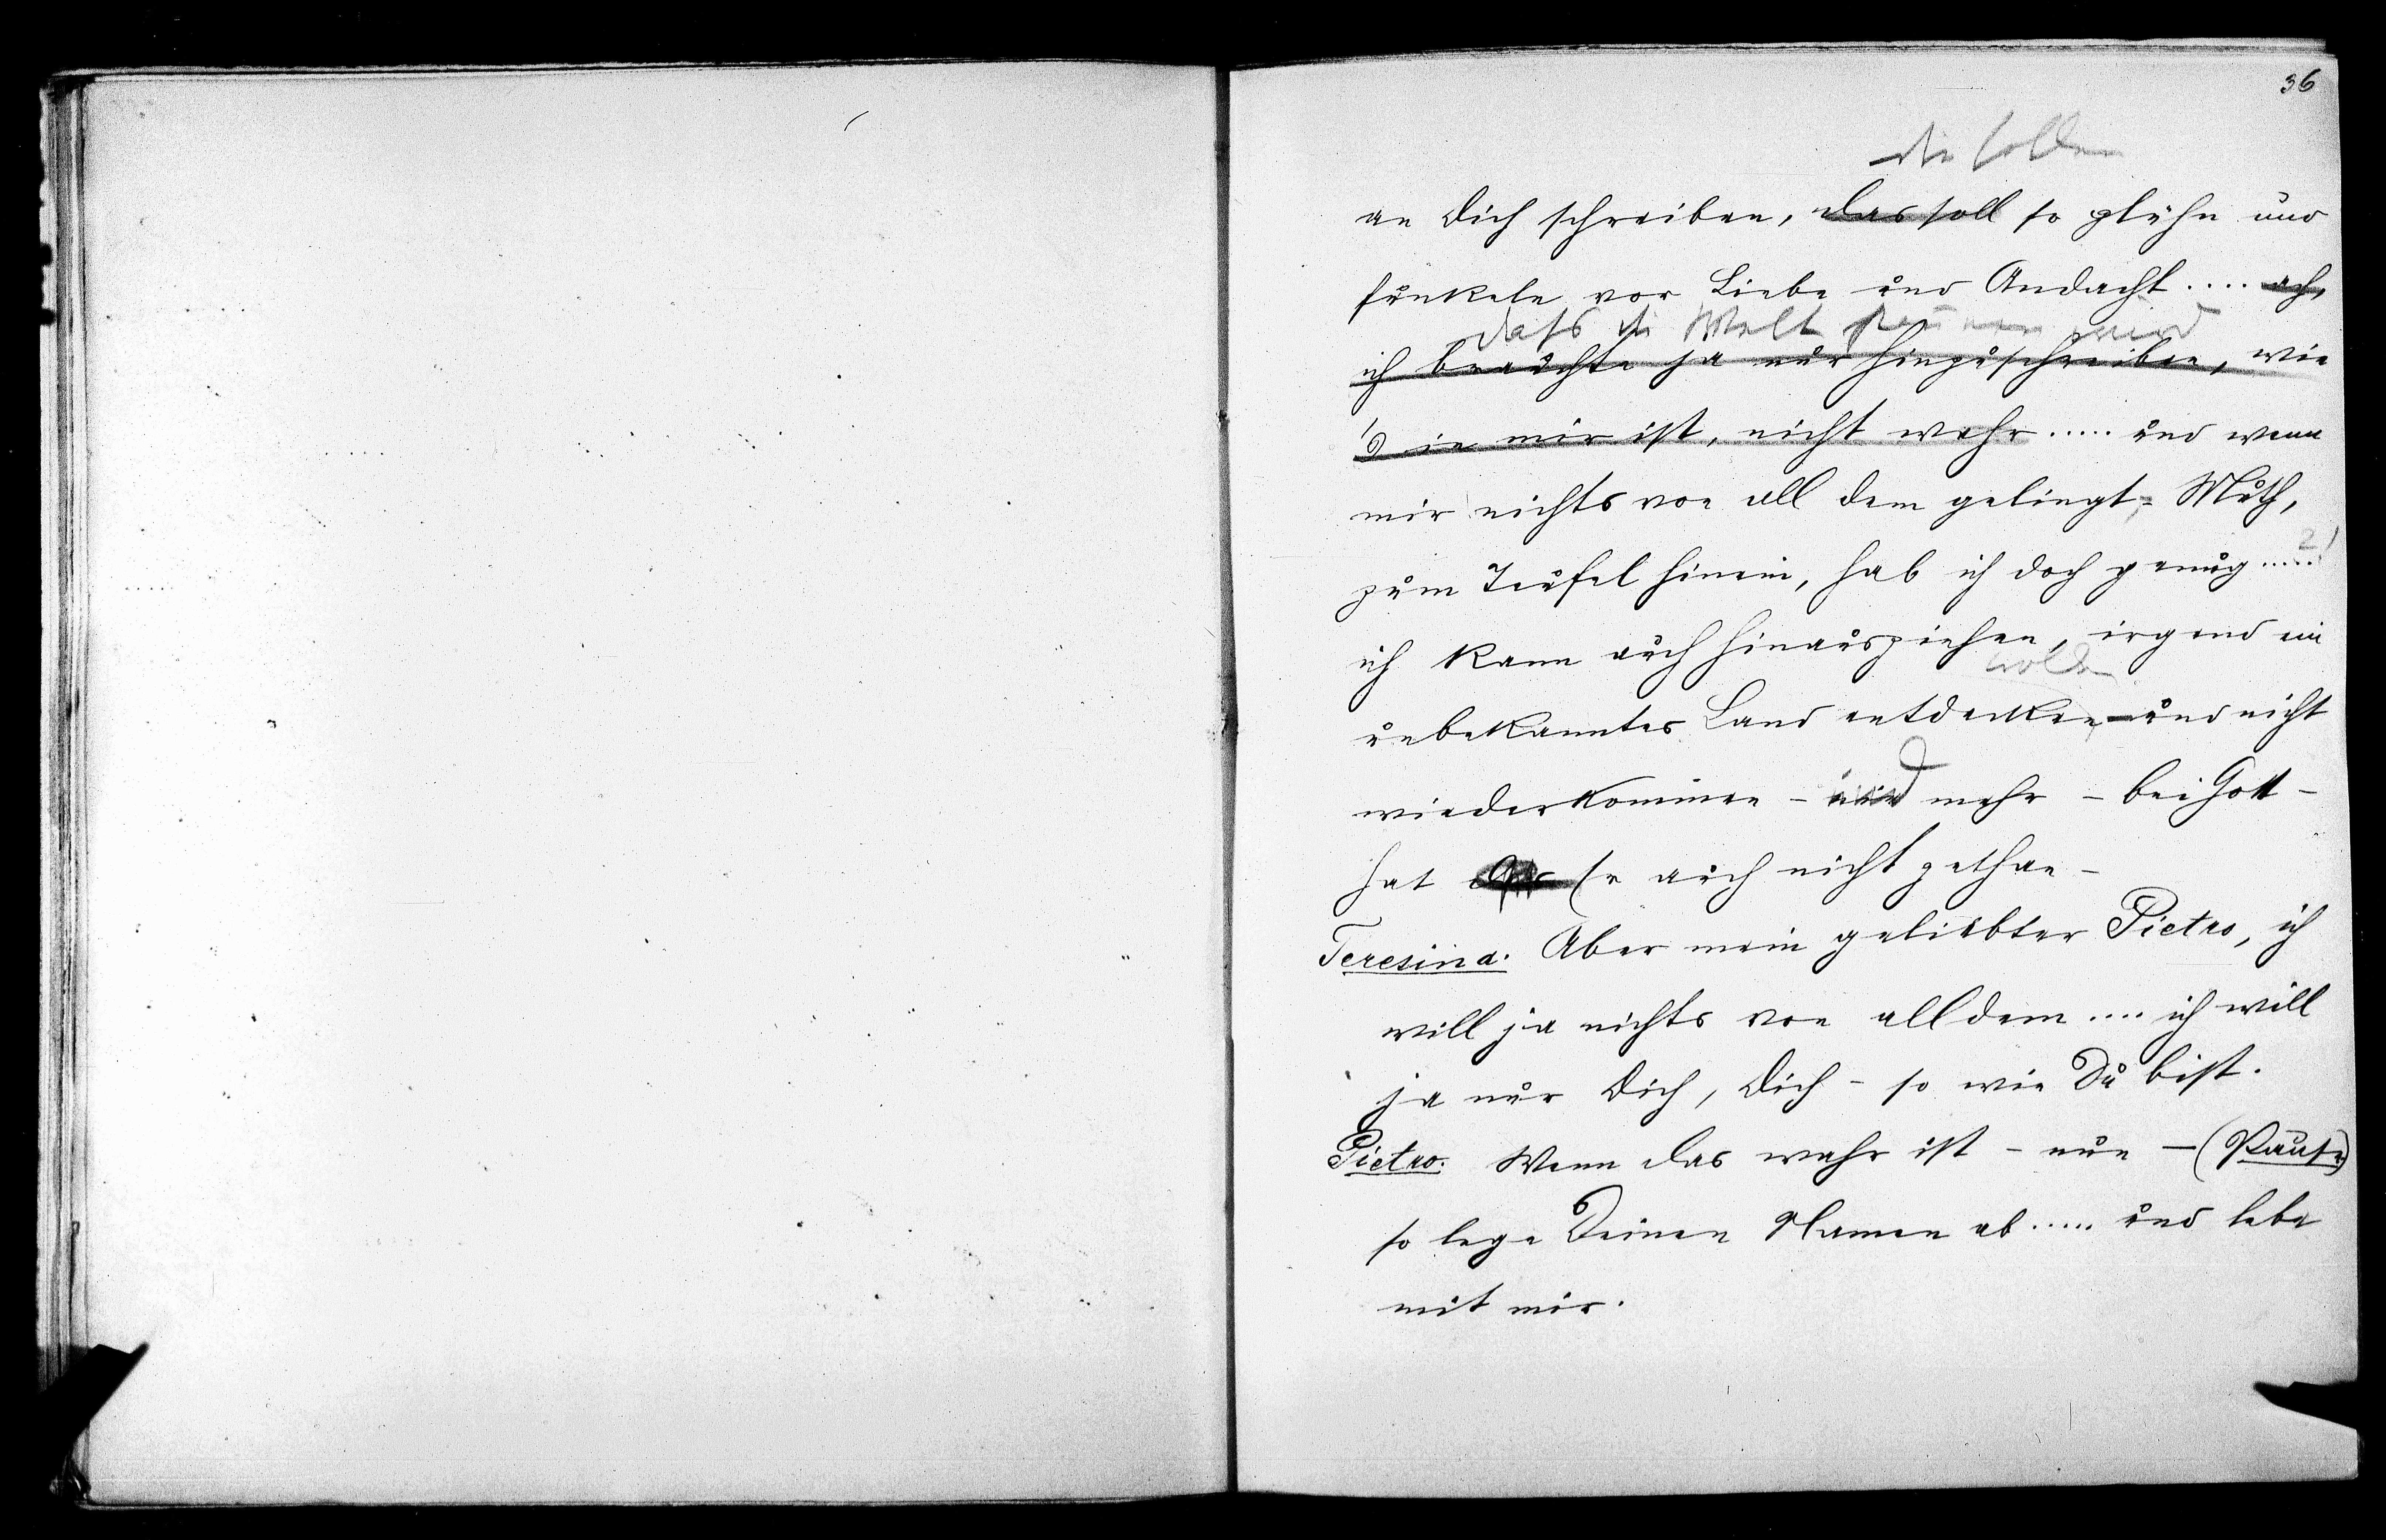 36
die sollen
an Dich schreiben, das soll so glühn und
funkeln vor Liebe und Andacht .... ach,
dass die Welt staunen wird
ich brauchte ja nur hinzuschreiben, wie
's in mir ist, nicht wahr ..... und wenn
mir nichts von all dem gelingt, - Muth,
zum Teufel hinein, hab ich doch genug ..... ?!
ich kann auch hinausziehen, irgend ein
wollen
unbekanntes Land entdecken - und nicht
wiederkommen - und mehr - bei Gott -
hat Er auch nicht gethan -
Teresina. Aber mein geliebter Pietro, ich
will ja nichts von alldem .... ich will
ja nur Dich, Dich - so wie Du bist.
Pietro. Wenn das wahr ist - nun - (Pause)
so lege Deinen Namen ab ..... und lebe
mit mir.